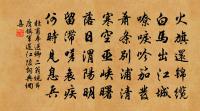 火旗還錦纜
白馬出江城
嘹唳吟笳發
蕭條別浦清
寒空巫峽曙
落日渭陽明
留滯嗟衰疾
何時見息兵
杜甫奉送卿二翁統節
度鎮軍還江陵